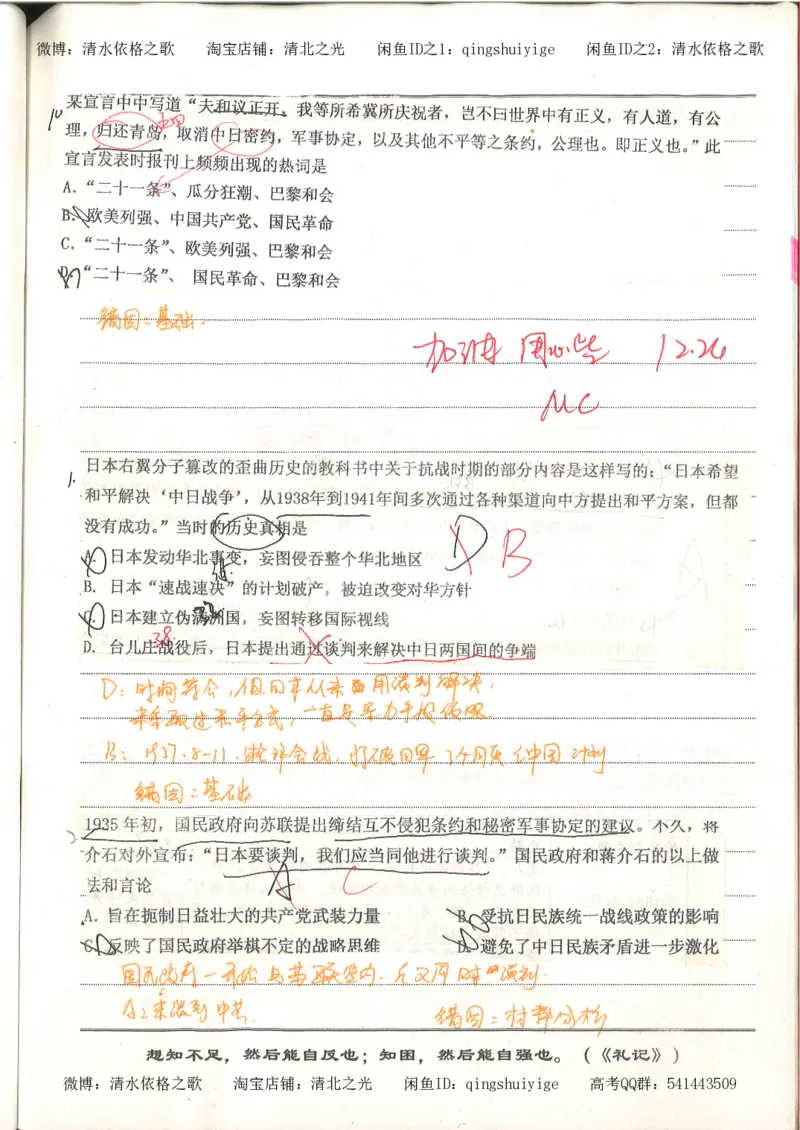 微博：清水依格之歌 淘宝店铺：清北之光 闲鱼ID之1：qingshuiyige 闲鱼ID之2：清水依格之歌
某宣言中中写道“夫和议正开，我等所希冀所庆祝者，岂不曰世界中有正义，有人道，有公
理，归还青岛，取消中日密约，军事协定，以及其他不平等之条约，公理也。即正义也。”此
宣言发表时报刊上频频出现的热词是
A．“二十一条”、瓜分狂潮、巴黎和会
B．欧美列强、中国共产党、国民革命
C．“二十一条”、欧美列强、巴黎和会
“二十一条”、 国民革命、巴黎和会
错因：基础.
加油 周 12.26
MC
1.
日本右翼分子篡改的歪曲历史的教科书中关于抗战时期的部分内容是这样写的：“日本希望
和平解决‘中日战争’，从1938年到1941年间多次通过各种渠道向中方提出和平方案，但都
没有成功。”当时的历史真相是
D B
A．日本发动华北事变，妄图侵吞整个华北地区
B．日本“速战速决”的计划破产，被迫改变对华方针
C．日本建立伪满洲国，妄图转移国际视线
38.
D．台儿庄战役后，日本提出通过谈判来解决中日两国间的争端
D：时间符合，但日本从未用谈判解决，
未采取过和平方式，一直是
B：1937.8-11.淞沪会战，打破日军3个月灭亡中国计划
错因：基础
2
1935年初，国民政府向苏联提出缔结互不侵犯条约和秘密军事协定的建议。不久，蒋
介石对外宣布：“日本要谈判，我们应当同他进行谈判。”国民政府和蒋介石的以上做
法和言论
A C
A．旨在扼制日益壮大的共产党武装力量 B．受抗日民族统一战线政策的影响
C．反映了国民政府举棋不定的战略思维 D．避免了中日民族矛盾进一步激化
国民政府一开始与苏联 后又同日谈判.
A：未谈到中共.
错因：材料分析
想知不足，然后能自反也；知困，然后能自强也。（《礼记》）
微博：清水依格之歌 淘宝店铺：清北之光 闲鱼ID：qingshuiyige 高考QQ群：541443509